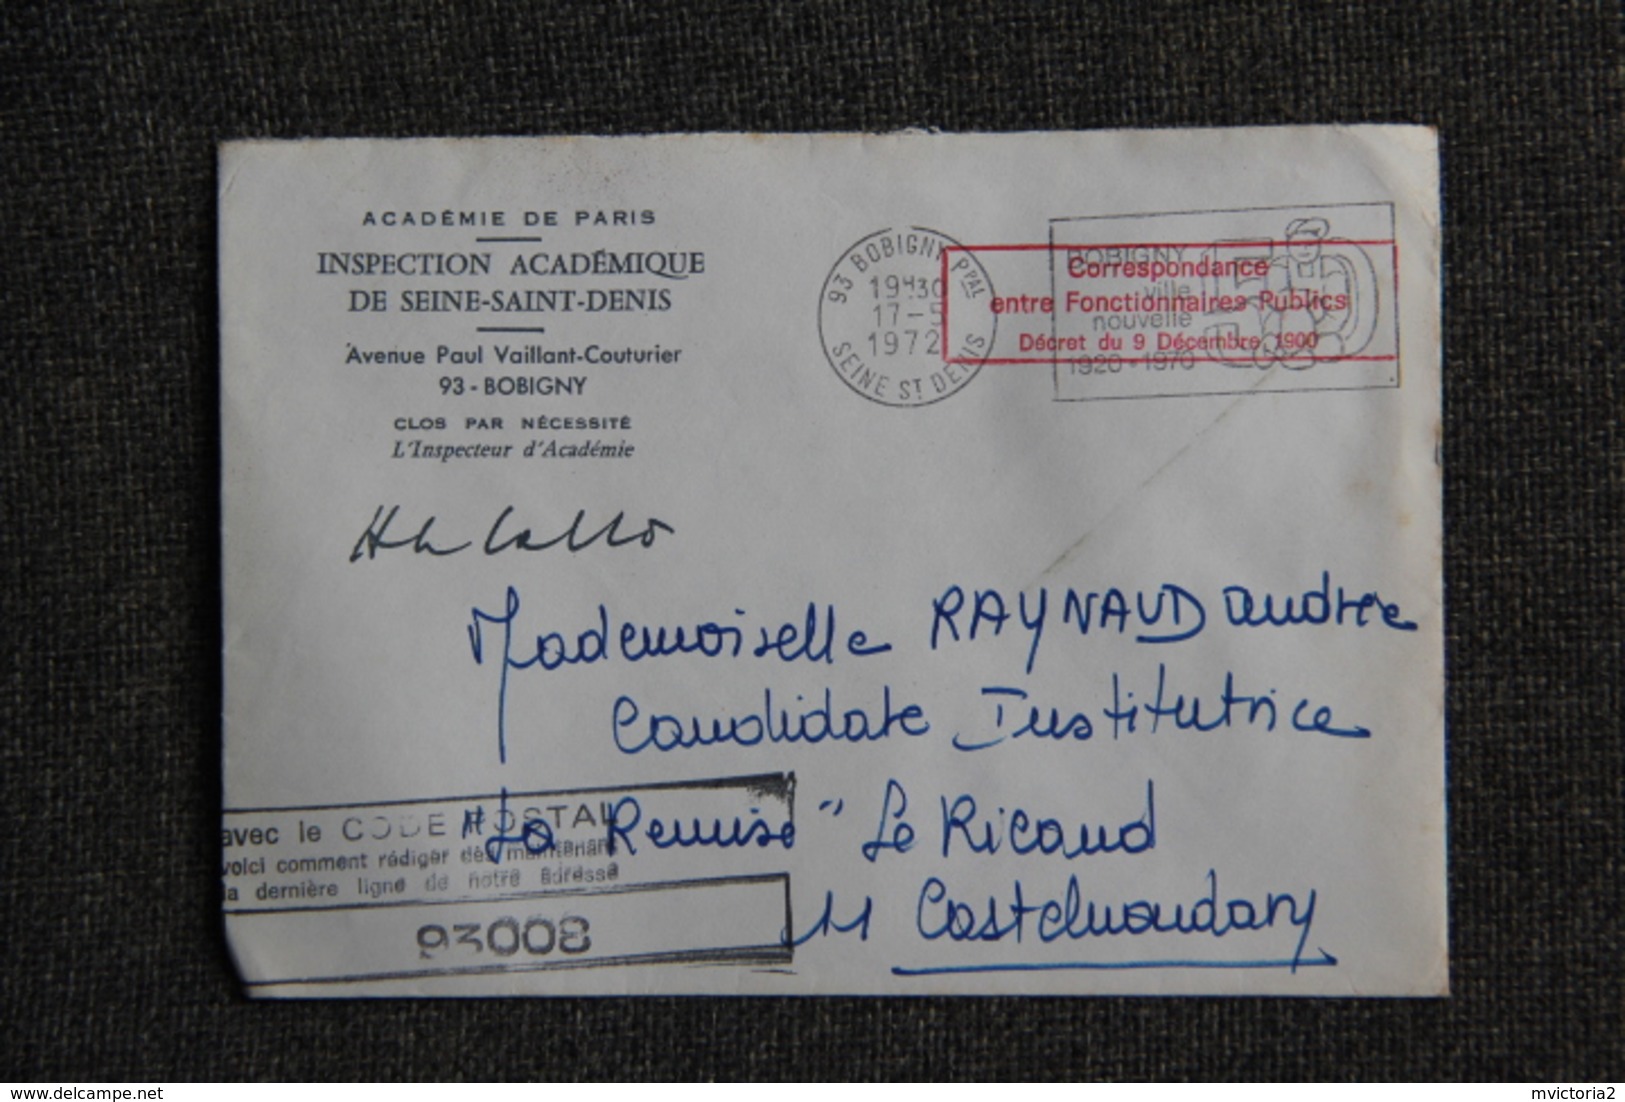 ACADÉMIE DE PARIS
INSPECTION ACADÉMIQUE
DE SEINE-SAINT-DENIS
Avenue Paul Vaillant-Couturier
93 - BOBIGNY
CLOS PAR NÉCESSITÉ
L'Inspecteur d'Académie
93 BOBIGNY PPAL
19H30
17-5
1972
SEINE ST DENIS
BOBIGNY
ville
nouvelle
1920-1970
50
Correspondance
entre Fonctionnaires Publics
Décret du 9 Décembre 1900
Mademoiselle RAYNAUD Andrée
Candidate Institutrice
"La Remise" Le Ricaud
11 Castelnaudary
avec le CODE POSTAL
voici comment rédiger dès maintenant
la dernière ligne de notre adresse
93008
delcampe.net
mvictoria2